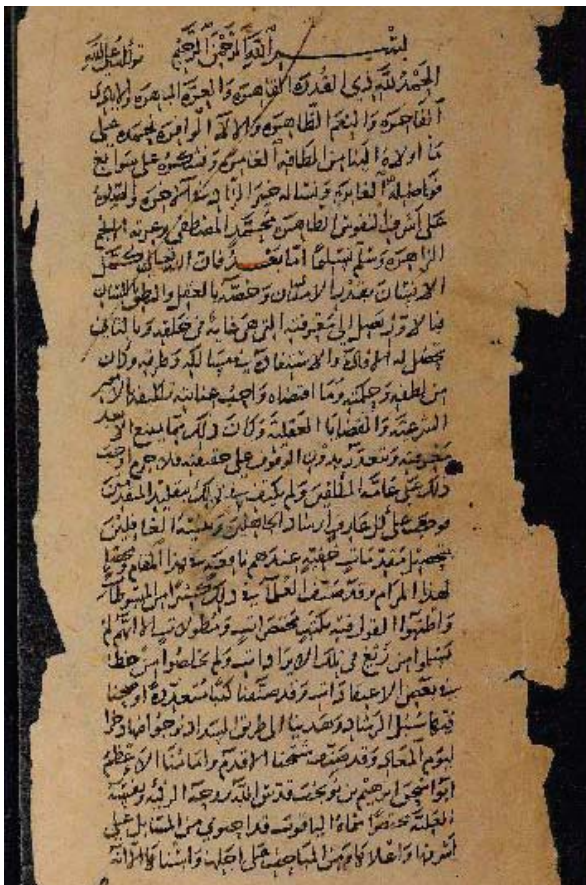 بسم الله الرحمن الرحيم توكلت على الله
الحمد لله ذي القدرة القاهرة والعزة الباهرة والايادي
الفاخرة والنعم الظاهرة والالاء الوافرة نحمده على
ما اولاه الينا من الطافه الغامرة ونشكره على سوابغ
فواضله الغامرة ونساله خير الدنيا والاخرة والصلوة
على اشرف النفوس الطاهرة محمد المصطفى وعترته الانجم
الزاهرة وسلم تسليما اما بعد فان الله تعالى كمل
الانسان بعد الامتنان وخصه بالعقل والنطق باللسان
فبالاول يصل الى معرفته التي هي غاية من خلقه وبالثاني
يحصل له الافادة والاستفادة مسالكه وطرقه وكان
من لطفه وحكمته وما اقتضاه واجب عنايته
الشرعية والقضايا العقلية وكان ذلك مما يمتنع
معرفته بدون الوقوف على حقيقته فلا جرم اوجب
ذلك على عامة المكلفين ولم يكتف في ذلك بتقليد المتقدمين
فوجب على كل عارف ارشاد الجاهلين وتنبيه الغافلين
بتحصيل مقدمات حقية عندهم نافعة في هذا المقام
لهذا المرام وقد صنف العلماء في ذلك كثيرا من المبسوطات
واطنبوا القول فيه بكتب مختصرات ومطولات الا انهم لم
يسلموا من زيغ في تلك الايرادات ولم يخلصوا من خطا
في بعض الاعتقادات وقد صنفنا كتبا متعددة اوضحنا
فيها سبل الرشاد وهدينا الى طريق السداد نرجو بها ذخرا
ليوم المعاد وقد صنف شيخنا الاقدم وامامنا الاعظم
ابو اسحق ابراهيم بن نوبخت قدس الله روحه الزكية ونفسه
العلية مختصرا سماه الياقوت قد احتوى من المسائل على
اشرفها واعلاها ومن المباحث على اجلها واسناها الا انه